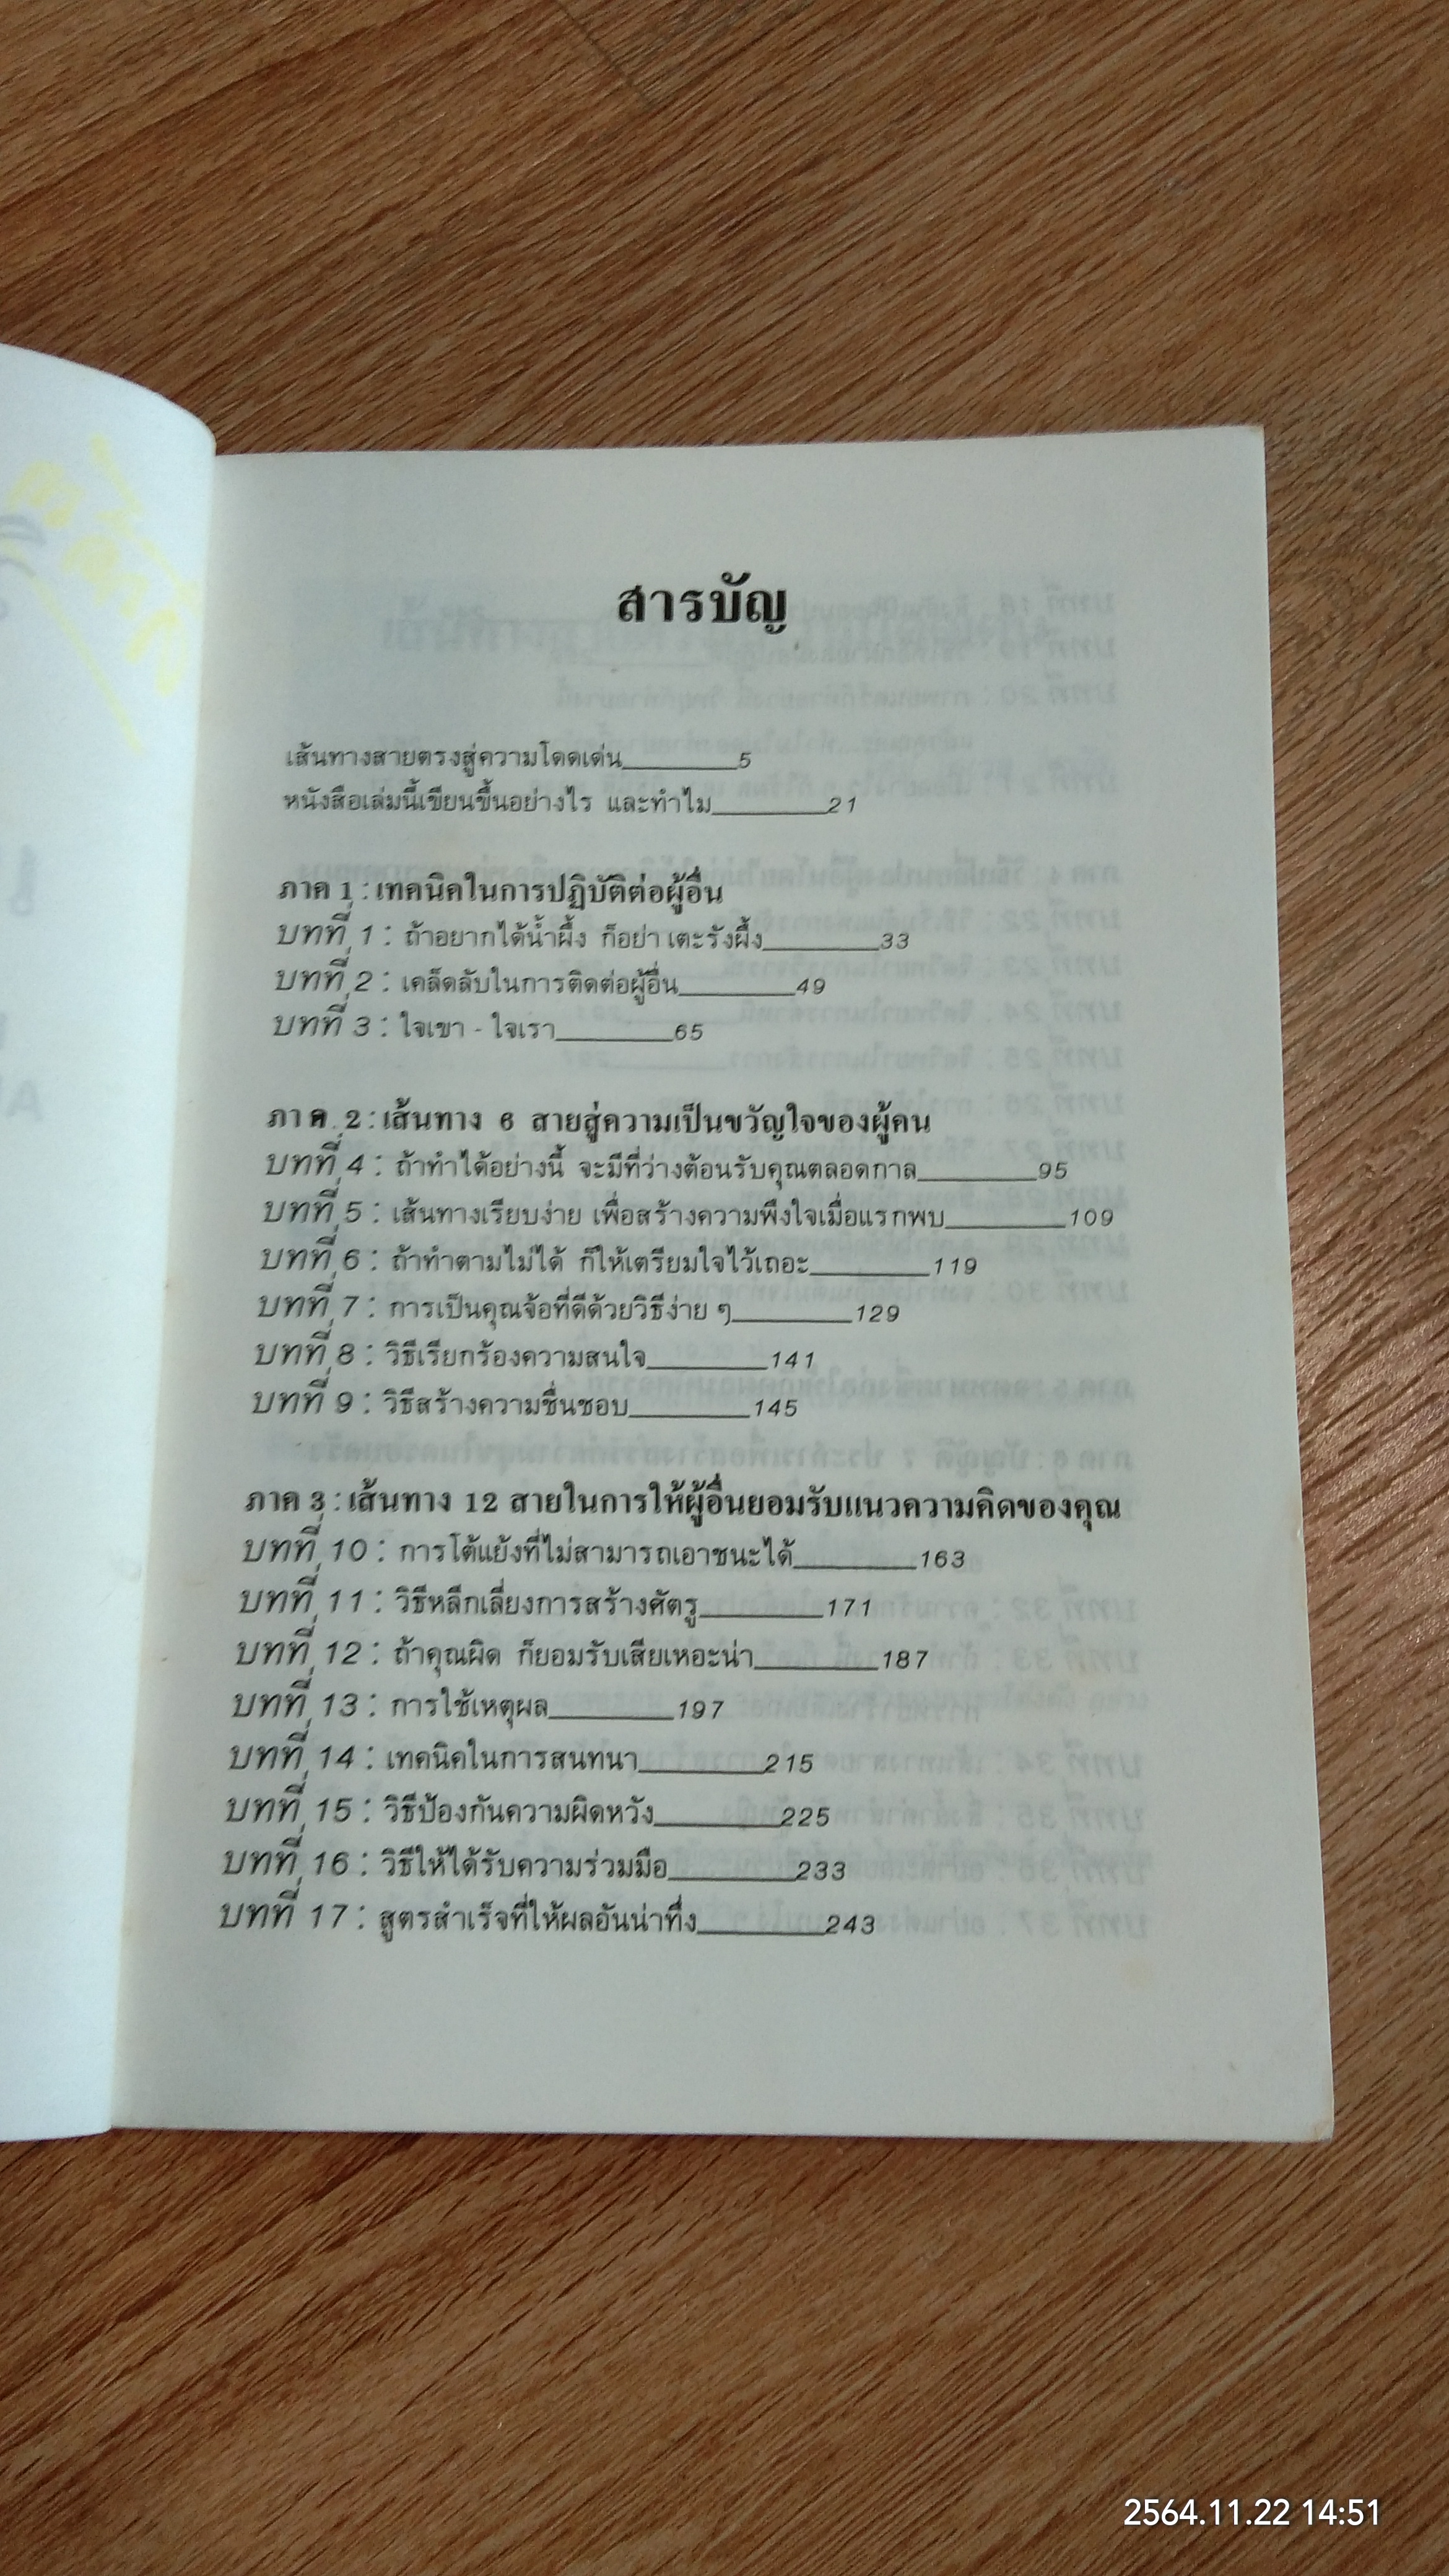 สารบัญ
เส้นทางสายตรงสู่ความโดดเด่น________5
หนังสือเล่มนี้เขียนขึ้นอย่างไร และทำไม________21
ภาค 1 : เทคนิคในการปฏิบัติต่อผู้อื่น
บทที่ 1 : ถ้าอยากได้น้ำผึ้ง ก็อย่าเตะรังผึ้ง________33
บทที่ 2 : เคล็ดลับในการติดต่อผู้อื่น________49
บทที่ 3 : ใจเขา - ใจเรา________65
ภาค 2 : เส้นทาง 6 สายสู่ความเป็นขวัญใจของผู้คน
บทที่ 4 : ถ้าทำได้อย่างนี้ จะมีที่ว่างต้อนรับคุณตลอดกาล________95
บทที่ 5 : เส้นทางเรียบง่าย เพื่อสร้างความพึงใจเมื่อแรกพบ________109
บทที่ 6 : ถ้าทำตามไม่ได้ ก็ให้เตรียมใจไว้เถอะ________119
บทที่ 7 : การเป็นคุณจ้อที่ดีด้วยวิธีง่าย ๆ________129
บทที่ 8 : วิธีเรียกร้องความสนใจ________141
บทที่ 9 : วิธีสร้างความชื่นชอบ________145
ภาค 3 : เส้นทาง 12 สายในการให้ผู้อื่นยอมรับแนวความคิดของคุณ
บทที่ 10 : การโต้แย้งที่ไม่สามารถเอาชนะได้________163
บทที่ 11 : วิธีหลีกเลี่ยงการสร้างศัตรู________171
บทที่ 12 : ถ้าคุณผิด ก็ยอมรับเสียเหอะน่า________187
บทที่ 13 : การใช้เหตุผล________197
บทที่ 14 : เทคนิคในการสนทนา________215
บทที่ 15 : วิธีป้องกันความผิดหวัง________225
บทที่ 16 : วิธีให้ได้รับความร่วมมือ________233
บทที่ 17 : สูตรสำเร็จที่ให้ผลอันน่าทึ่ง________243
2564.11.22 14:51